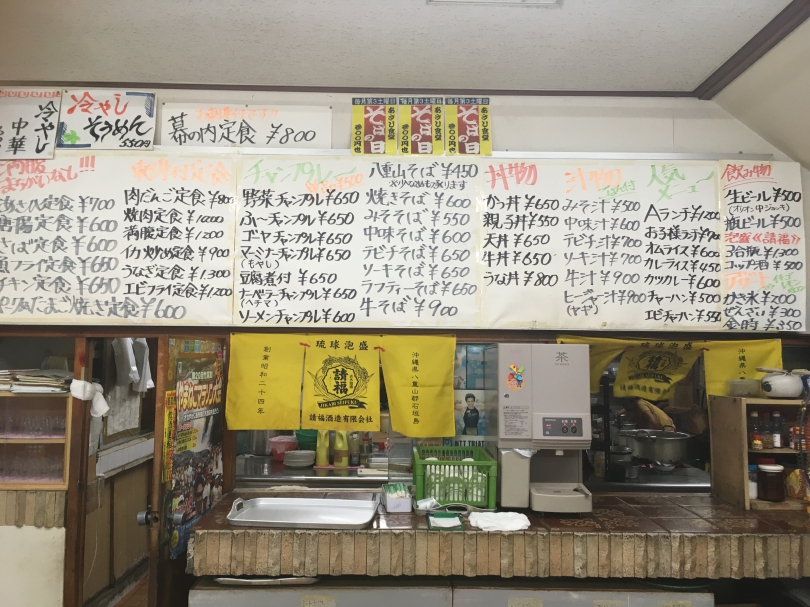 冷やし
中華
冷やし
そうめん
550円
幕の内定食 ¥800
毎月第3土曜日
そばの日
あさり食堂
毎月第3土曜日
そばの日
あさり食堂
毎月第3土曜日
そばの日
あさり食堂
まちがいなし!!!
¥700
¥600
さば定食 ¥600
魚フライ定食 ¥650
チキン定食 ¥650
たまご焼き定食 ¥600
肉だんご定食 ¥800
焼肉定食 ¥1000
満腹定食 ¥1200
イカ炒め定食 ¥900
うなぎ定食 ¥1.300
エビフライ定食 ¥1.200
チャンプルー
野菜チャンプル ¥650
ふーチャンプル ¥650
ゴーヤチャンプル ¥650
マーミナーチャンプル ¥650
(もやし)
豆腐煮付 ¥650
ナーベラーチャンプル ¥650
(ヘチマ)
ソーメンチャンプル ¥600
八重山そば ¥450
焼きそば ¥600
みそそば ¥550
中味そば ¥600
テビチそば ¥650
ソーキそば ¥650
ラフティーそば ¥650
牛そば ¥900
丼物
かつ丼 ¥650
親子丼 ¥550
天丼 ¥650
牛丼 ¥650
うな丼 ¥800
汁物
みそ汁 ¥500
中味汁 ¥600
テビチ汁 ¥700
ソーキ汁 ¥700
牛汁 ¥900
ヒージャー汁 ¥900
(ヤギ)
人気
メニュー
Aランチ ¥1200
お子様ランチ ¥700
オムライス ¥600
カレーライス ¥450
カツカレー ¥600
チャーハン ¥500
エビチャーハン ¥550
飲み物
生ビール ¥500
(オリオン中ジョッキ)
瓶ビール ¥500
泡盛《請福》
3合瓶 ¥1300
コップ1杯 ¥300
かき氷 ¥200
ぜんざい ¥300
金時 ¥350
創業昭和二十四年
琉球泡盛
請福
SEIFUKU
請福酒造有限会社
沖縄県八重山郡石垣島
茶
請福
請福酒造有限会社
NTT